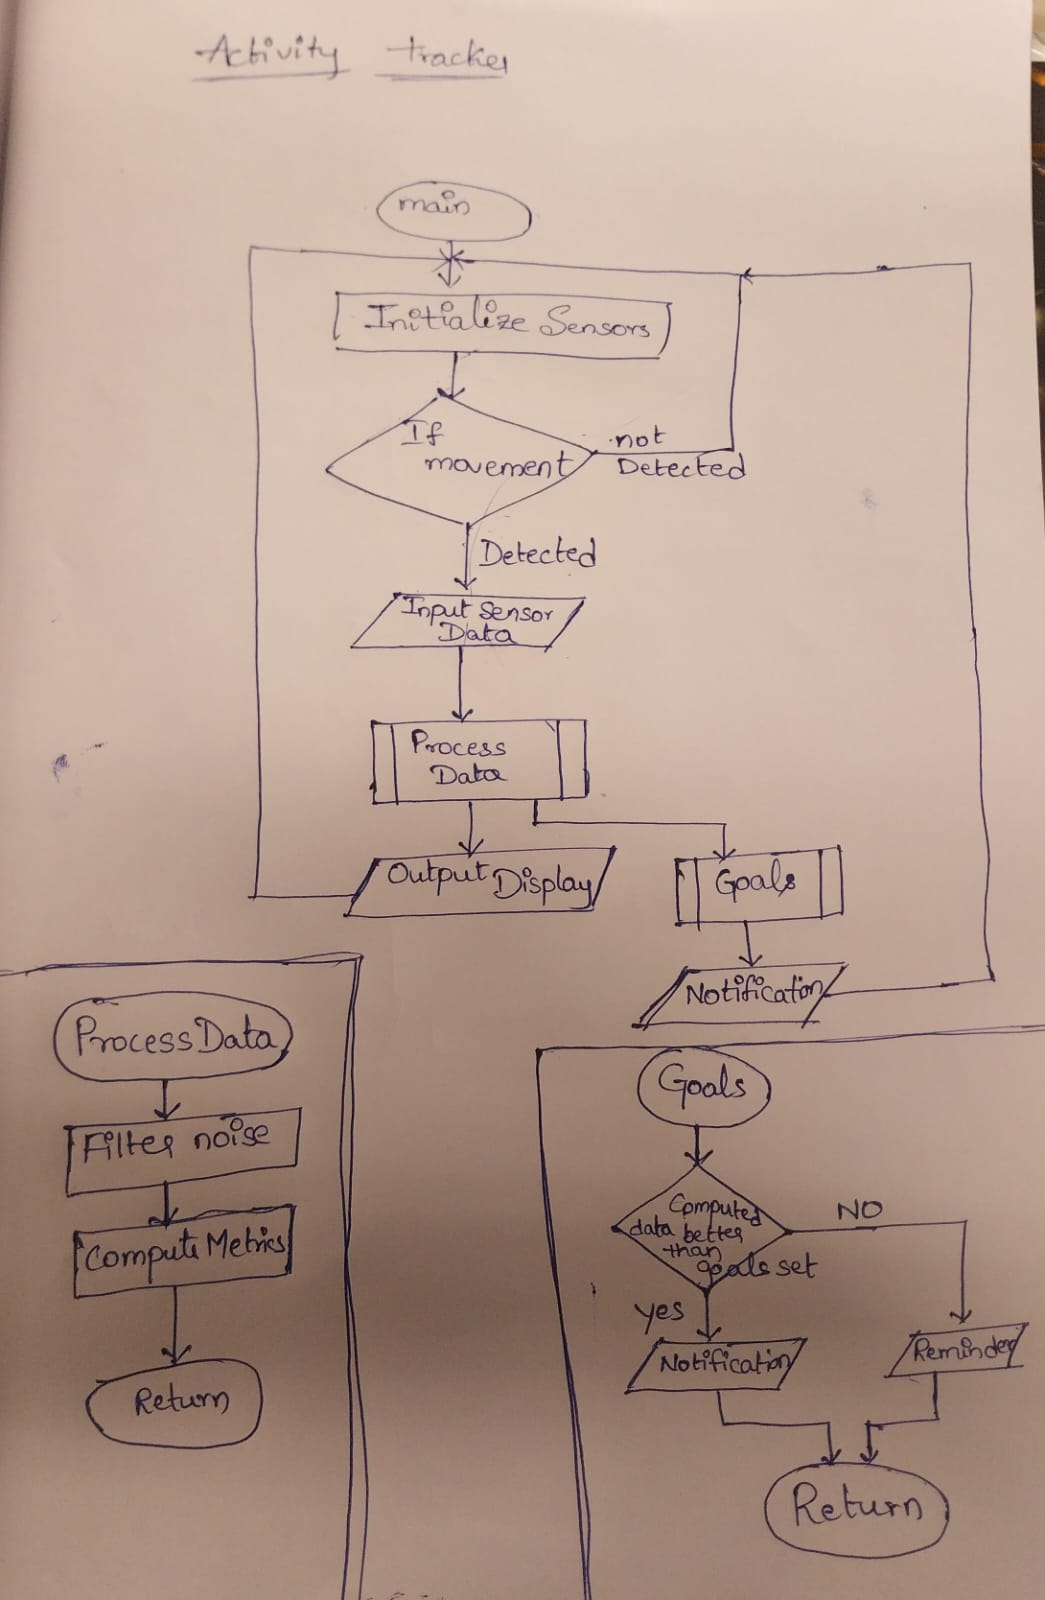 Activity tracker
main
Initialize Sensors
If
movement
not
Detected
Detected
Input Sensor
Data
Process
Data
Output Display
Goals
Notification
Process Data
Filter noise
Compute Metrics
Return
Goals
Computed
data better
than
goals set
NO
yes
Notification
Reminder
Return